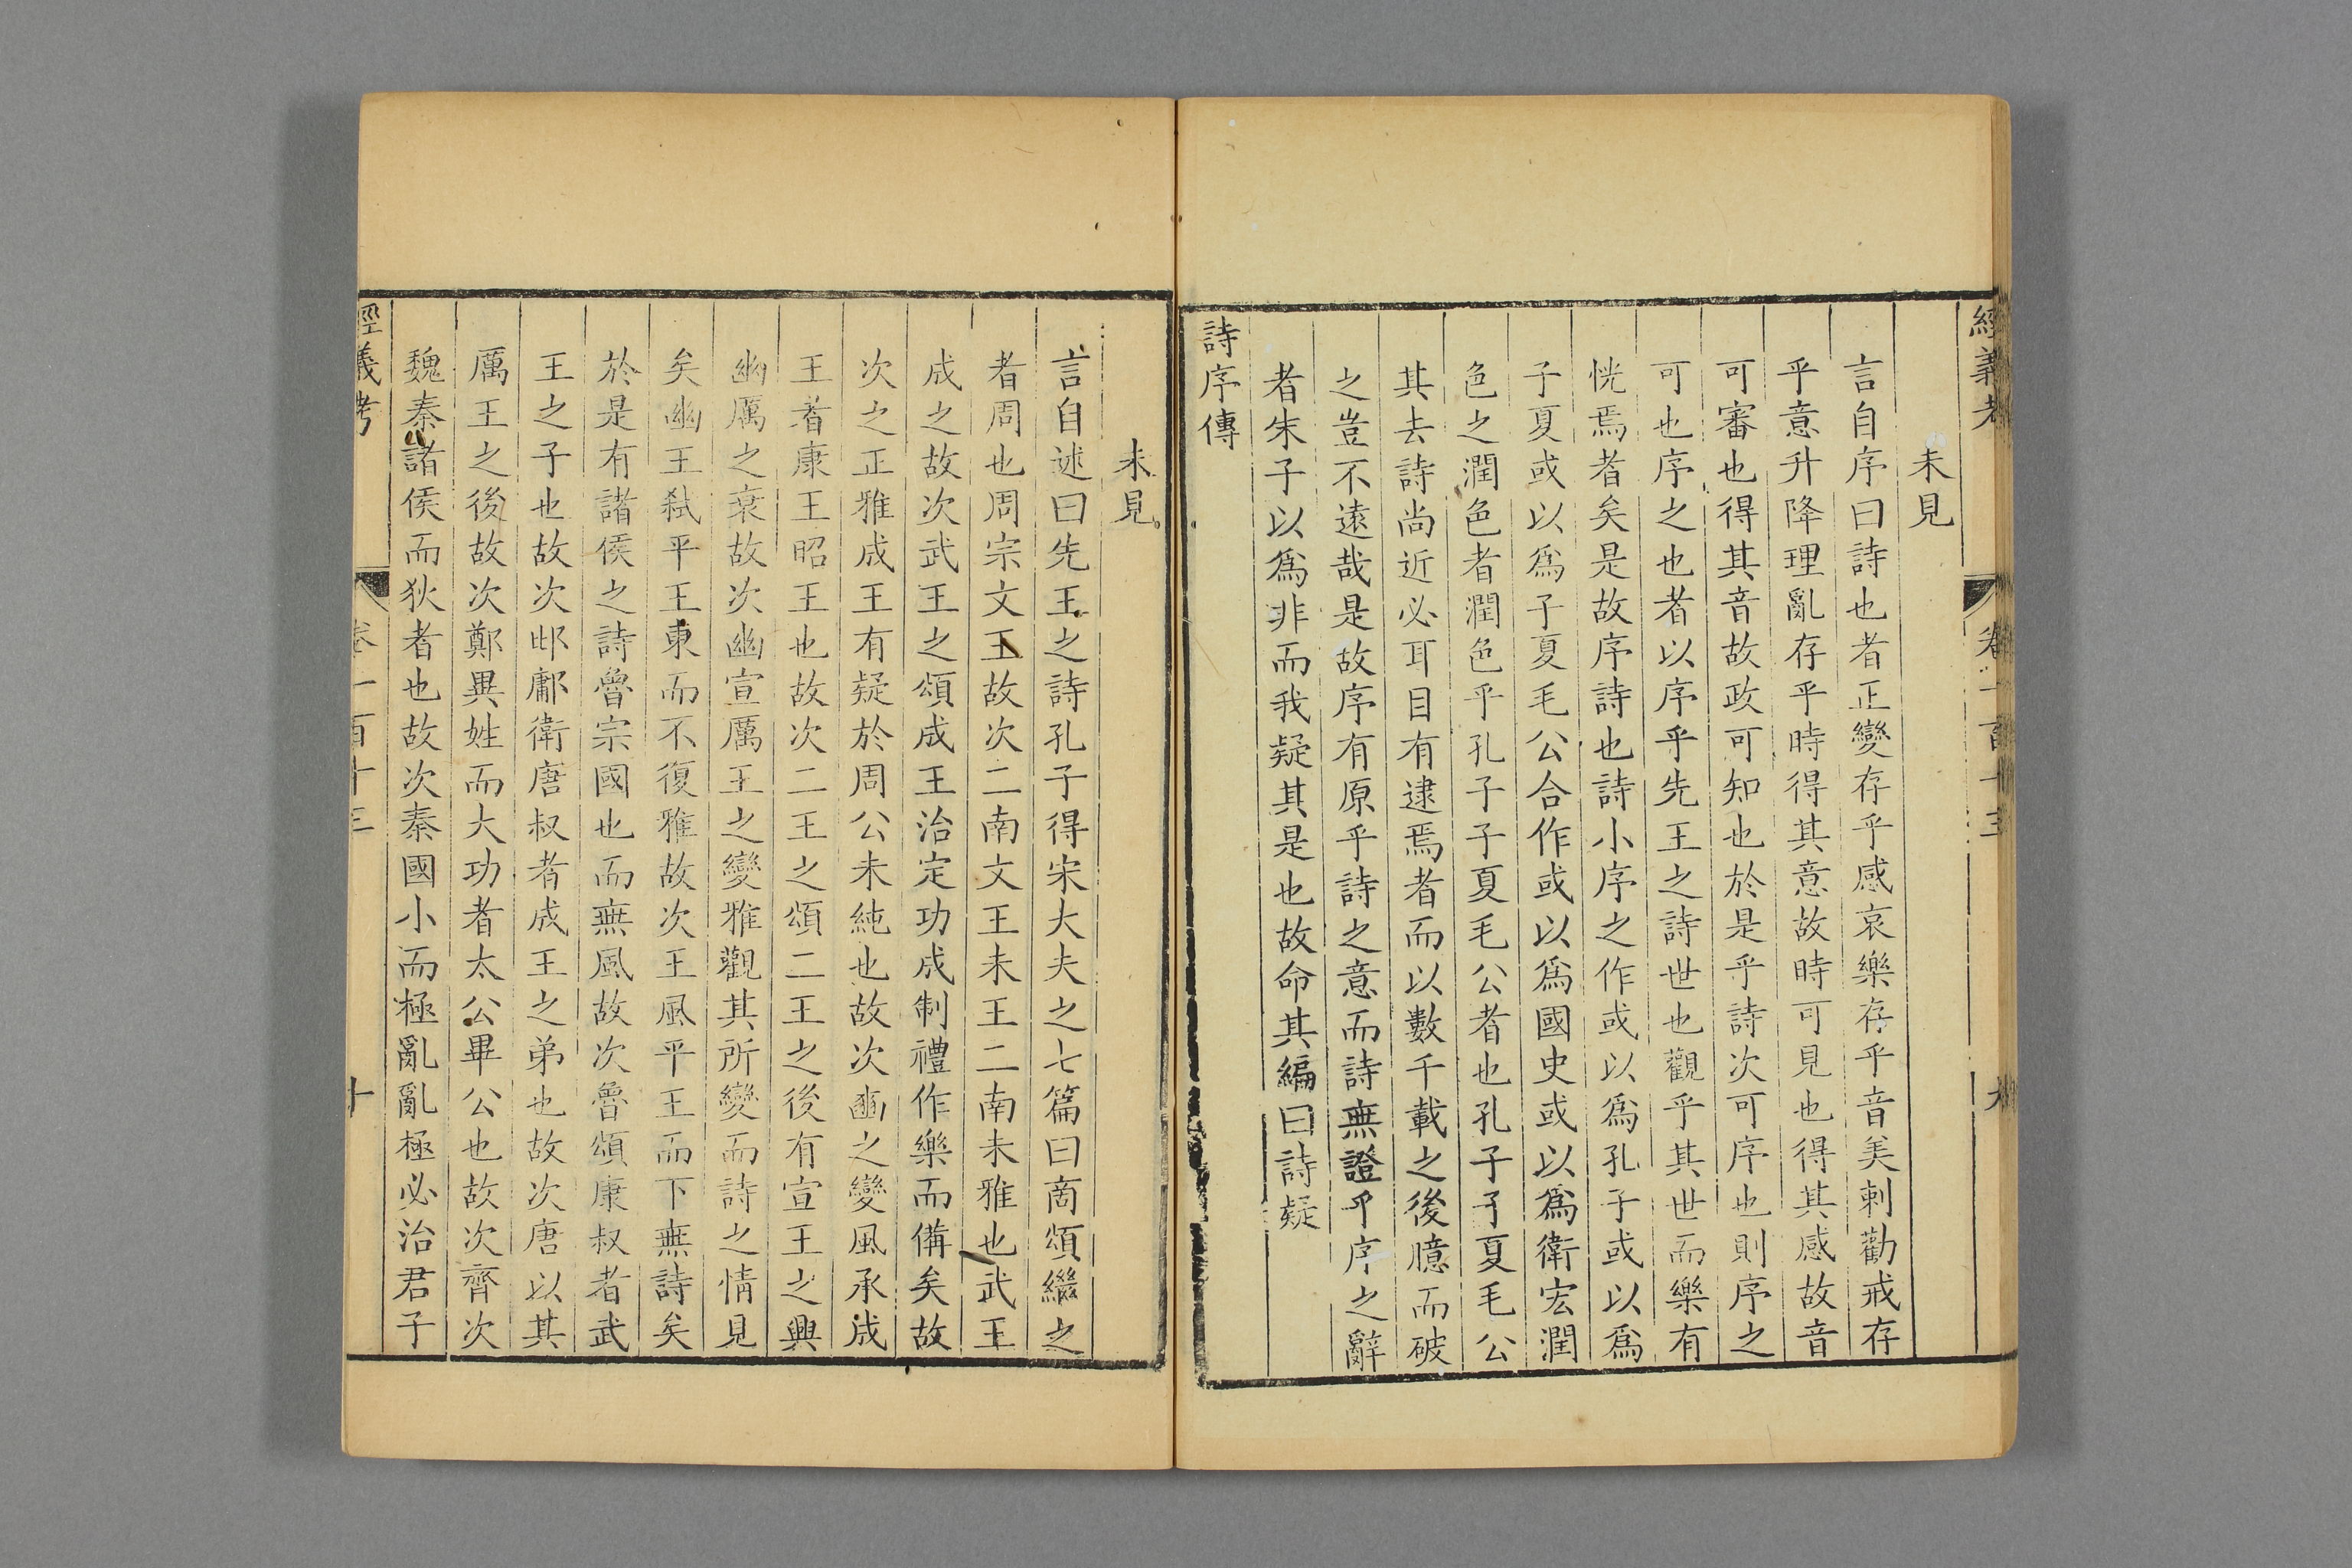 經義考 卷一百十三 九
未見
言自序曰詩也者正變存乎感哀樂存乎音美刺勸戒存
乎意升降理亂存乎時得其意故時可見也得其感故音
可審也得其音故政可知也於是乎詩次可序也則序之
可也序之也者以序乎先王之詩世也觀乎其世而樂有
恍焉者矣是故序詩也詩小序之作或以爲孔子或以爲
子夏或以爲子夏毛公合作或以爲國史或以爲衛宏潤
色之潤色者潤色乎孔子子夏毛公者也孔子子夏毛公
其去詩尚近必耳目有逮焉者而以數千載之後臆而破
之豈不遠哉是故序有原乎詩之意而詩無證乎序之辭
者朱子以爲非而我疑其是也故命其編曰詩疑
詩序傳
未見
言自述曰先王之詩孔子得宋大夫之七篇曰商頌繼之
者周也周宗文王故次二南文王未王二南未雅也武王
成之故次武王之頌成王治定功成制禮作樂而備矣故
次之正雅成王有疑於周公未純也故次豳之變風承成
王者康王昭王也故次二王之頌二王之後有宣王之興
幽厲之衰故次幽宣厲王之變雅觀其所變而詩之情見
矣幽王弑平王東而不復雅故次王風平王而下無詩矣
於是有諸侯之詩魯宗國也而無風故次魯頌康叔者武
王之子也故次邶鄘衛唐叔者成王之弟也故次唐以其
厲王之後故次鄭異姓而大功者太公畢公也故次齊次
魏秦諸侯而狄者也故次秦國小而極亂亂極必治君子
經義考 卷一百十三 十